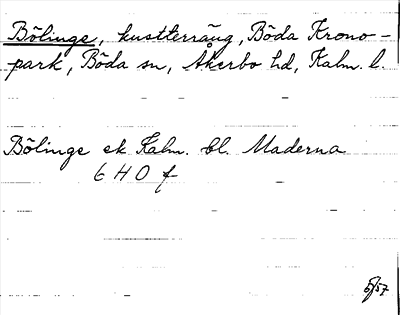 Bölinge, kustterräng, Böda Krono-
park, Böda sn, Åkerbo hd, Kalm. l.
Bölinge ek Kalm. bl. Maderna
6 H 0 f
5/57